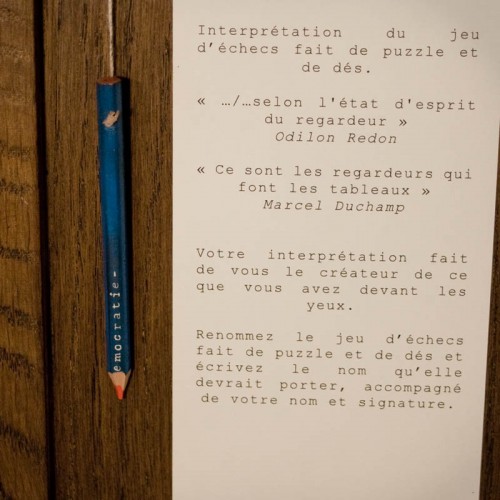 Interprétation du jeu
d'échecs fait de puzzle et
de dés.
« …/…selon l'état d'esprit
du regardeur »
Odilon Redon
« Ce sont les regardeurs qui
font les tableaux »
Marcel Duchamp
Votre interprétation fait
de vous le créateur de ce
que vous avez devant les
yeux.
Renommez le jeu d'échecs
fait de puzzle et de dés et
écrivez le nom qu'elle
devrait porter, accompagné
de votre nom et signature.
emocratie-